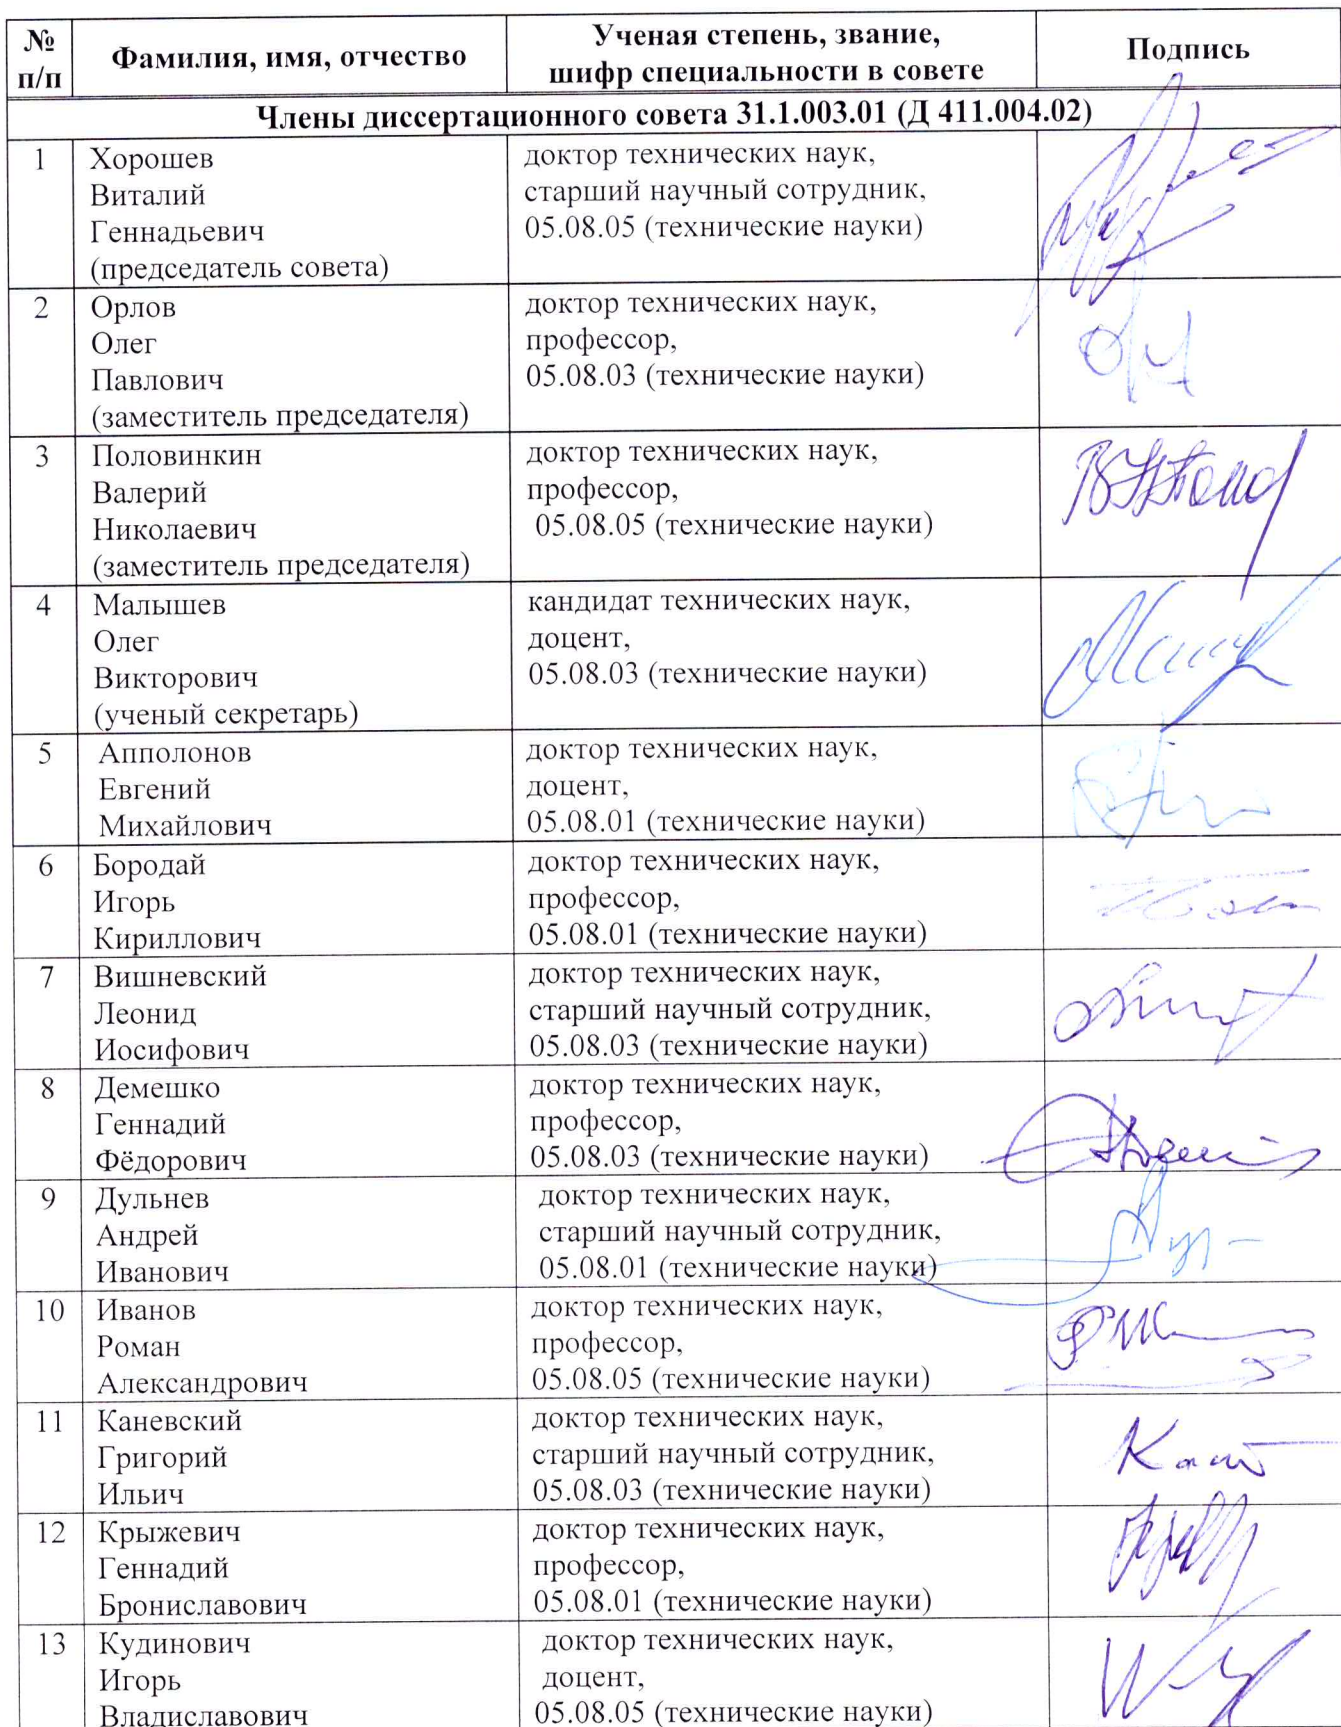 № п/п
Фамилия, имя, отчество
Ученая степень, звание,
шифр специальности в совете
Подпись
Члены диссертационного совета 31.1.003.01 (Д 411.004.02)
1
Хорошев
Виталий
Геннадьевич
(председатель совета)
доктор технических наук,
старший научный сотрудник,
05.08.05 (технические науки)
2
Орлов
Олег
Павлович
(заместитель председателя)
доктор технических наук,
профессор,
05.08.03 (технические науки)
3
Половинкин
Валерий
Николаевич
(заместитель председателя)
доктор технических наук,
профессор,
05.08.05 (технические науки)
4
Малышев
Олег
Викторович
(ученый секретарь)
кандидат технических наук,
доцент,
05.08.03 (технические науки)
5
Апполонов
Евгений
Михайлович
доктор технических наук,
доцент,
05.08.01 (технические науки)
6
Бородай
Игорь
Кириллович
доктор технических наук,
профессор,
05.08.01 (технические науки)
7
Вишневский
Леонид
Иосифович
доктор технических наук,
старший научный сотрудник,
05.08.03 (технические науки)
8
Демешко
Геннадий
Фёдорович
доктор технических наук,
профессор,
05.08.03 (технические науки)
9
Дульнев
Андрей
Иванович
доктор технических наук,
старший научный сотрудник,
05.08.01 (технические науки)
10
Иванов
Роман
Александрович
доктор технических наук,
профессор,
05.08.05 (технические науки)
11
Каневский
Григорий
Ильич
доктор технических наук,
старший научный сотрудник,
05.08.03 (технические науки)
12
Крыжевич
Геннадий
Брониславович
доктор технических наук,
профессор,
05.08.01 (технические науки)
13
Кудинович
Игорь
Владиславович
доктор технических наук,
доцент,
05.08.05 (технические науки)